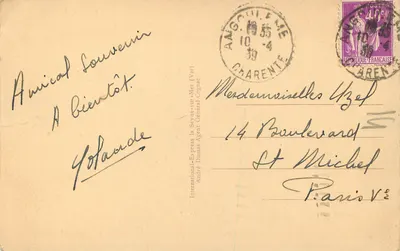 Amical Souvenir
A bientôt.
Yolande
ANGOULEME
35
10 -4
39
CHARENTE
Mesdemoiselles Uzel
14 Boulevard
St Michel
Paris Ve